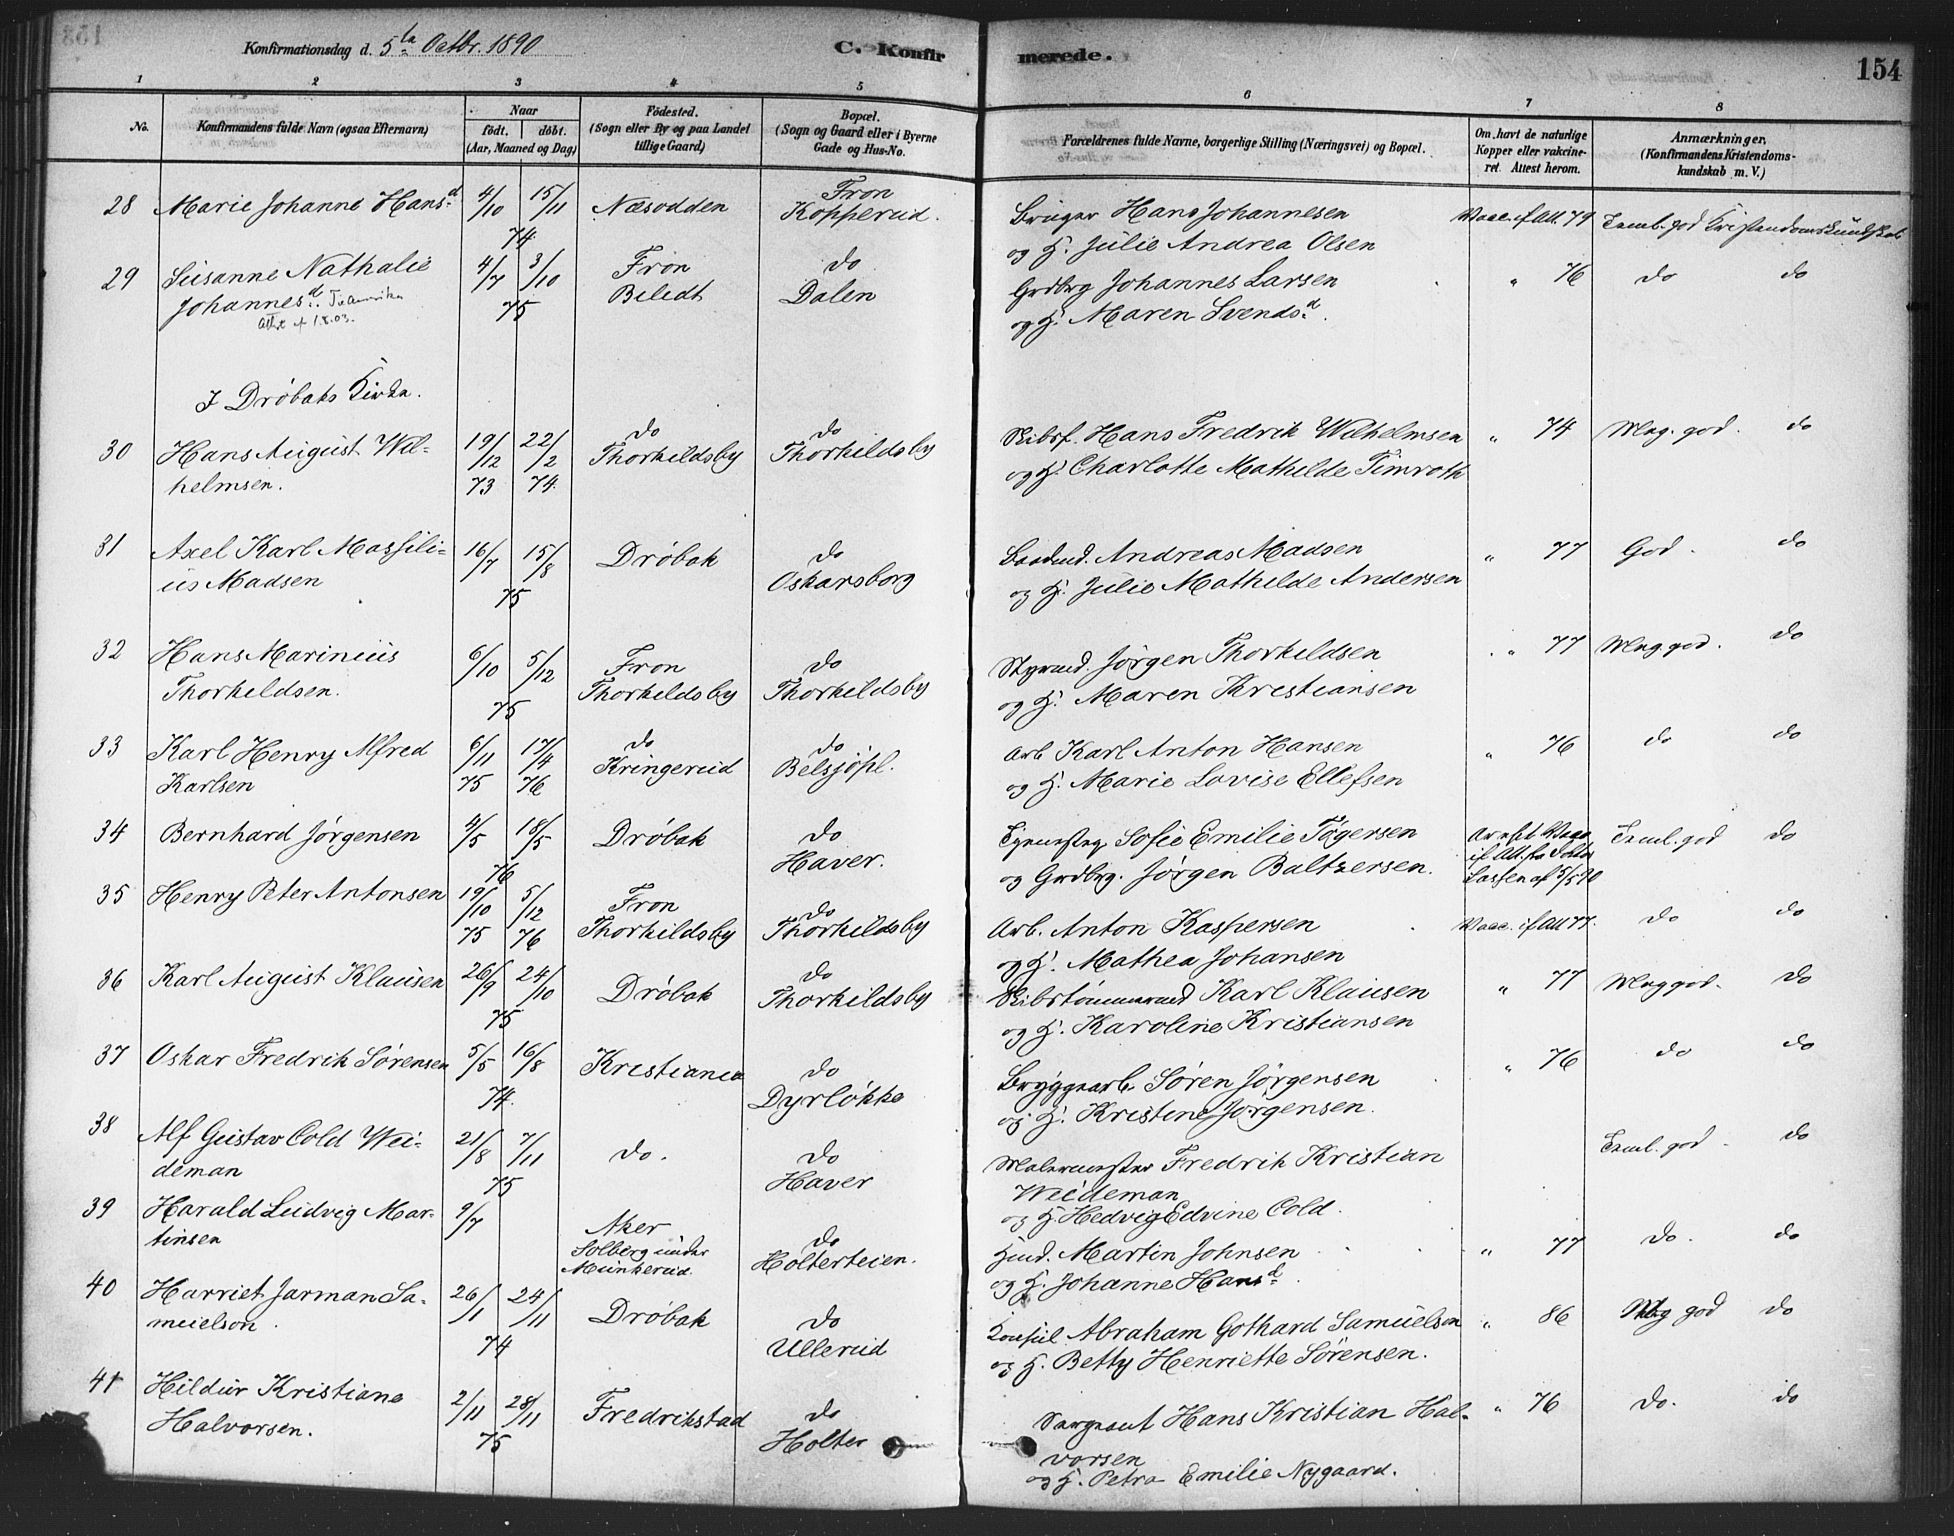 Konfirmationsdag d. 5te Octbr. 1890
C. Konfirmerede.
154
1 2 3 4 5 6 7 8
No.
Konfirmandens fulde Navn (ogsaa Efternavn)
Naar
født. døbt.
(Aar, Maaned og Dag)
Fødested.
(Sogn eller By og paa Landet
tillige Gaard)
Bopæl.
(Sogn og Gaard eller i Byerne
Gade og Hus-No.
Forældrenes fulde Navne, borgerlige Stilling (Næringsvei) og Bopæl.
Om havt de naturlige
Kopper eller vakcine-
ret. Attest herom.
Anmærkninger.
(Konfirmandens Kristendoms-
kundskab m. V.)
28 Marie Johanne Hansd. 4/10 15/11 74 Næsodden Fron Kopperud. Bruger Hans Johannesen Vacc. if. Att. 79 Teml. god Kristendomskundskab
og H. Julie Andrea Olsen
29 Susanne Nathalie 4/7 3/10 75 Fron do Grdbrg Johannes Larsen " 76 do do
Johannesd. Biledt Dalen og H. Maren Svendsd.
Til Amerika
Att. af 1.8.03.
I Drøbaks Kirke.
30 Hans August Wil- 19/12 22/2 do do Skibsf. Hans Fredrik Wilhelmsen " 74 Meg. god. do
helmsen. 73 74. Thorkildsby Thorkildsby og H. Charlotte Mathilde Timroth
31 Axel Karl Massili- 16/7 15/8 Drøbak do Baadsmd. Andreas Madsen " 77 God. do
us Madsen 75 Oskarsborg og H. Julie Mathilde Andersen
32 Hans Marinius 6/10 5/12 Fron do Styrmd. Jørgen Thorkildsen " 77 Meg god. do
Thorkildsen. 75 Thorkildsby Thorkildsby og H. Maren Kristiansen
33 Karl Henry Alfred 6/11 17/4 do do Arb Karl Anton Hansen " 76 do do
Karlsen 75 76 Kringerud Belsjøpl. og H. Marie Lovise Ellefsen
34 Bernhard Jørgensen 4/5 18/5 Drøbak do Sofie Emilie Tøgersen Teml. god do
76 Haver. og Grdbrg. Jørgen Baltzersen. if Att. fra Doktor
af 5/5 90
35 Henry Peter Antonsen 19/10 5/12 Fron do Arb. Anton Kaspersen Vacc. if Att 77. do do
75 76 Thorkildsby Thorkildsby og H. Mathea Johansen
36 Karl August Klausen 26/9 24/10 Drøbak do Skibstømmermd Karl Klausen " 77 Meg god. do
75 Thorkildsby og H. Karoline Kristiansen
37 Oskar Fredrik Sørensen 5/5 16/8 Kristiania do Bryggearb Søren Jørgensen " 76 do do
74. Dyrløkke og H. Kristine Jørgensen.
38 Alf Gustav Cold Wei- 21/8 7/11 do. do Malermester Fredrik Kristian Teml. god. do
deman 75 Haver Weideman
og H. Hedvig Edvine Cold.
39 Harald Ludvig Mar- 9/7 Aker do Martin Johnsen " 77 do. do
tinsen Solberg under Holterteien. og H. Johanne Hansd.
Munkerud.
40 Harriet Jarman Sa- 26/1 24/11 Drøbak do Konsul Abraham Gothard Samuelsen " 86 Meg god do
muelson. 74 Ullerud og H. Betty Henriette Sørensen.
41 Hildur Kristiane 2/11 28/11 Fredrikstad do Sergeant Hans Kristian Hal- " 76 do. do
Halvorsen. 75 Holter vorsen
og H. Petra Emilie Nygaard.